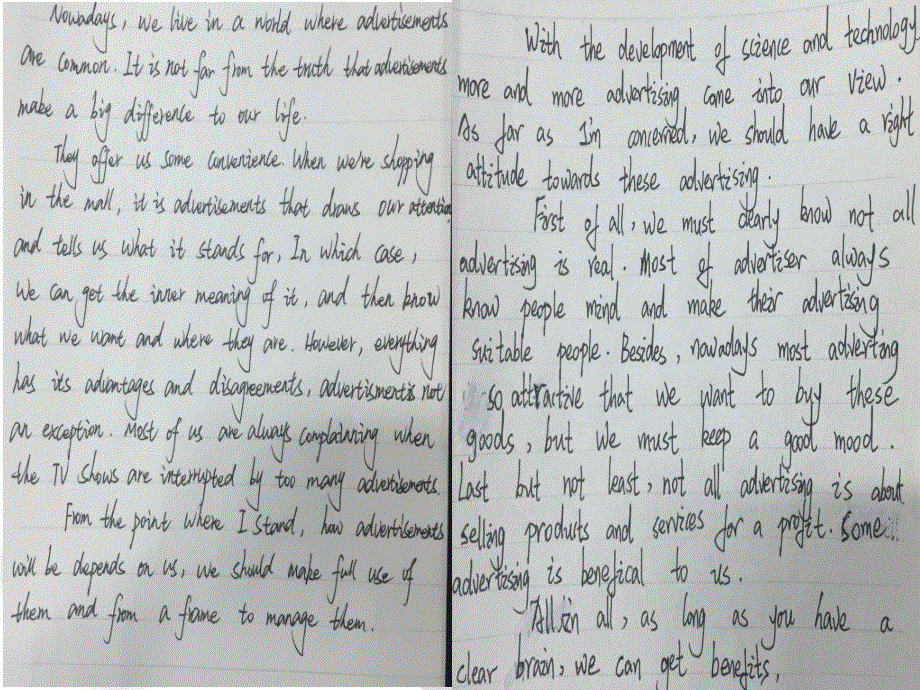 Nowadays, we live in a world where advertisements
are common. It is not far from the truth that advertisements
make a big difference to our life.
They offer us some convenience. When we're shopping
in the mall, it is advertisements that draws our attention
and tells us what it stands for, In which case,
we can get the inner meaning of it, and then know
what we want and where they are. However, everything
has its advantages and disagreements, advertisment is not
an exception. Most of us are always complainning when
the TV shows are interrupted by too many advertisements.
From the point where I stand, how advertisements
will be depends on us, we should make full use of
them and from a frame to manage them.
With the development of science and technology,
more and more advertising come into our view.
As far as I'm concerned, we should have a right
attitude towards these advertising.
First of all, we must clearly know not all
advertising is real. Most of advertiser always
know people mind and make their advertising
suitable people. Besides, nowadays most adverting
so attractive that we want to buy these
goods, but we must keep a good mood.
Last but not least, not all advertising is about
selling products and services for a profit. Some
advertising is benefical to us.
All in all, as long as you have a
clear brain, we can get benefits,